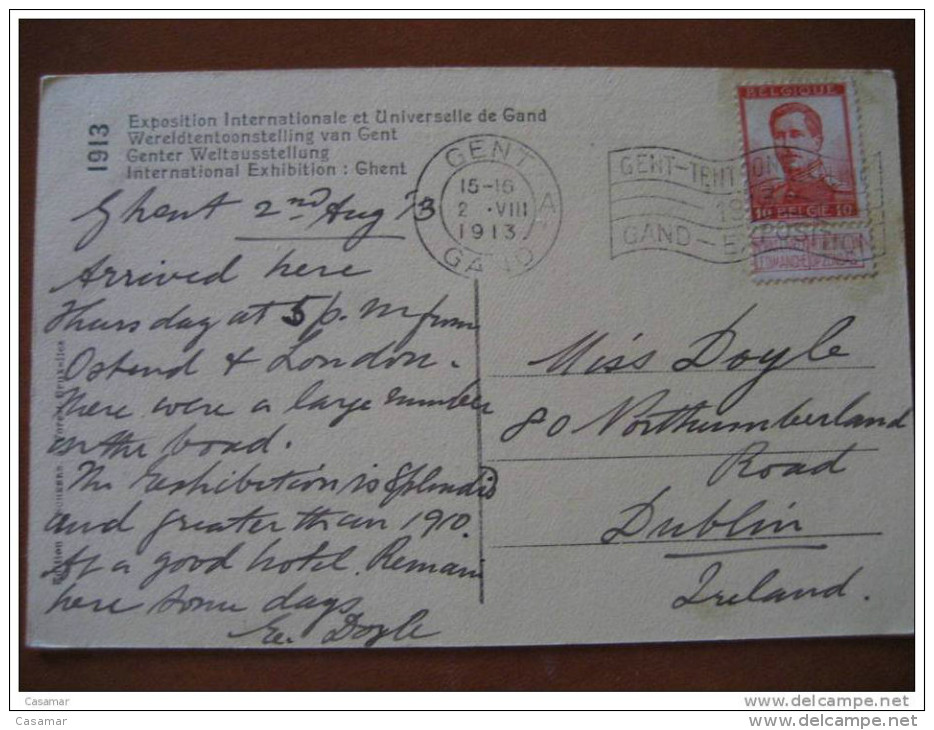 1913
Exposition Internationale et Universelle de Gand
Wereldtentoonstelling van Gent
Genter Weltausstellung
International Exhibition : Ghent
GENT
15-16
2 .VIII
1913
GAND
A
GENT-TENT
GAND-EXPOSIT
BELGIQUE
10 BELGIE 10
Ghent 2nd Aug 13
Arrived here
Thursday at 5 p.m from
Ostend & London.
There were a large number
on the boad.
The Exhibition is Splendid
and greater than 1910.
At a good hotel. Remain
here some days
Doyle
Miss Doyle
80 Northumberland
Road
Dublin
Ireland.
Casamar
Casamar
www.delcampe.net
www.delcampe.net